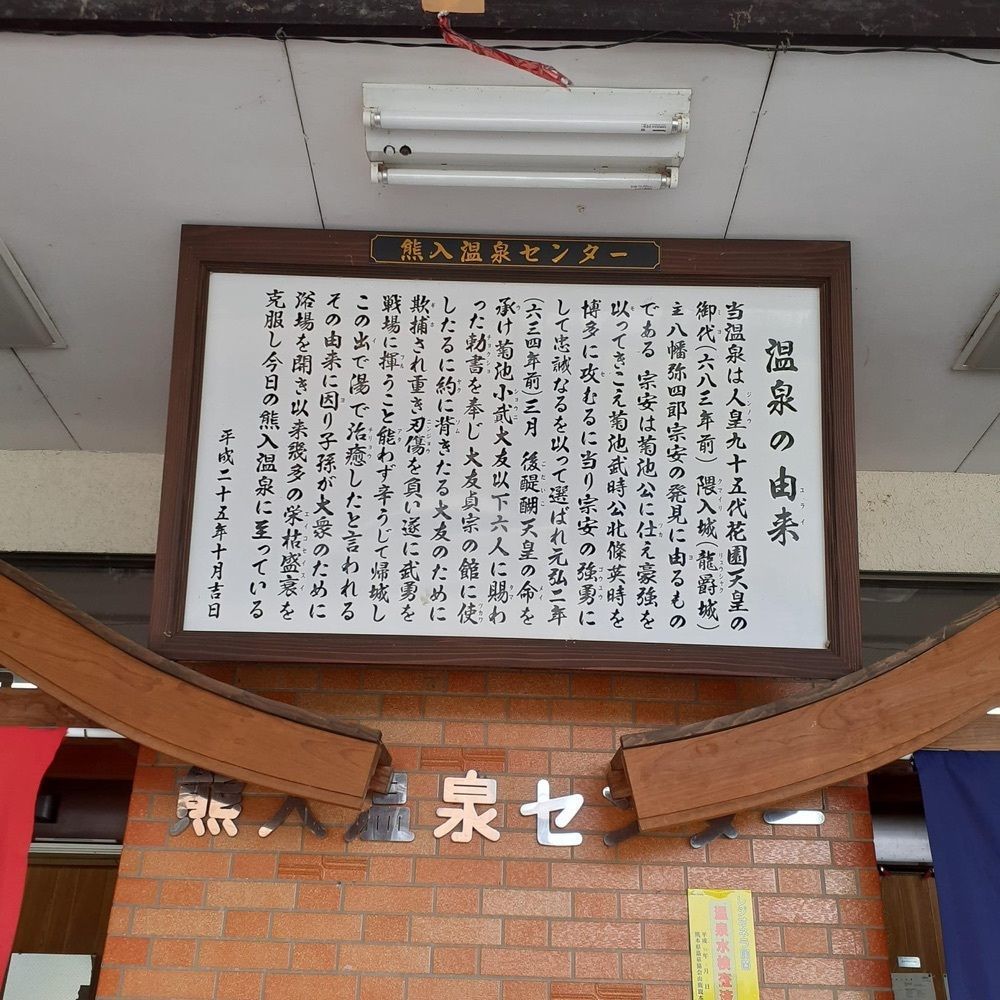 熊入温泉センター
温泉の由来
当温泉は人皇九十五代花園天皇の
御代(六八三年前)隈入城(龍爵城)
主八幡弥四郎宗安の発見に由るもの
である 宗安は菊池公に仕え豪強を
以ってきこえ菊池武時公北條英時を
博多に攻むるに当り宗安の強勇に
して忠誠なるを以って選ばれ元弘二年
(六三四年前)三月 後醍醐天皇の命を
承け菊池小貮大友以下六人に賜わ
った勅書を奉じ大友貞宗の館に使
したるに約に背きたる大友のために
欺捕され重き刃傷を負い遂に武勇を
戦場に揮うこと能わず辛うじて帰城し
この出で湯で治癒したと言われる
その由来に因り子孫が大衆のために
浴場を開き以来幾多の栄枯盛衰を
克服し今日の熊入温泉に至っている
平成二十五年十月吉日
熊入温泉センター
温泉水検査済